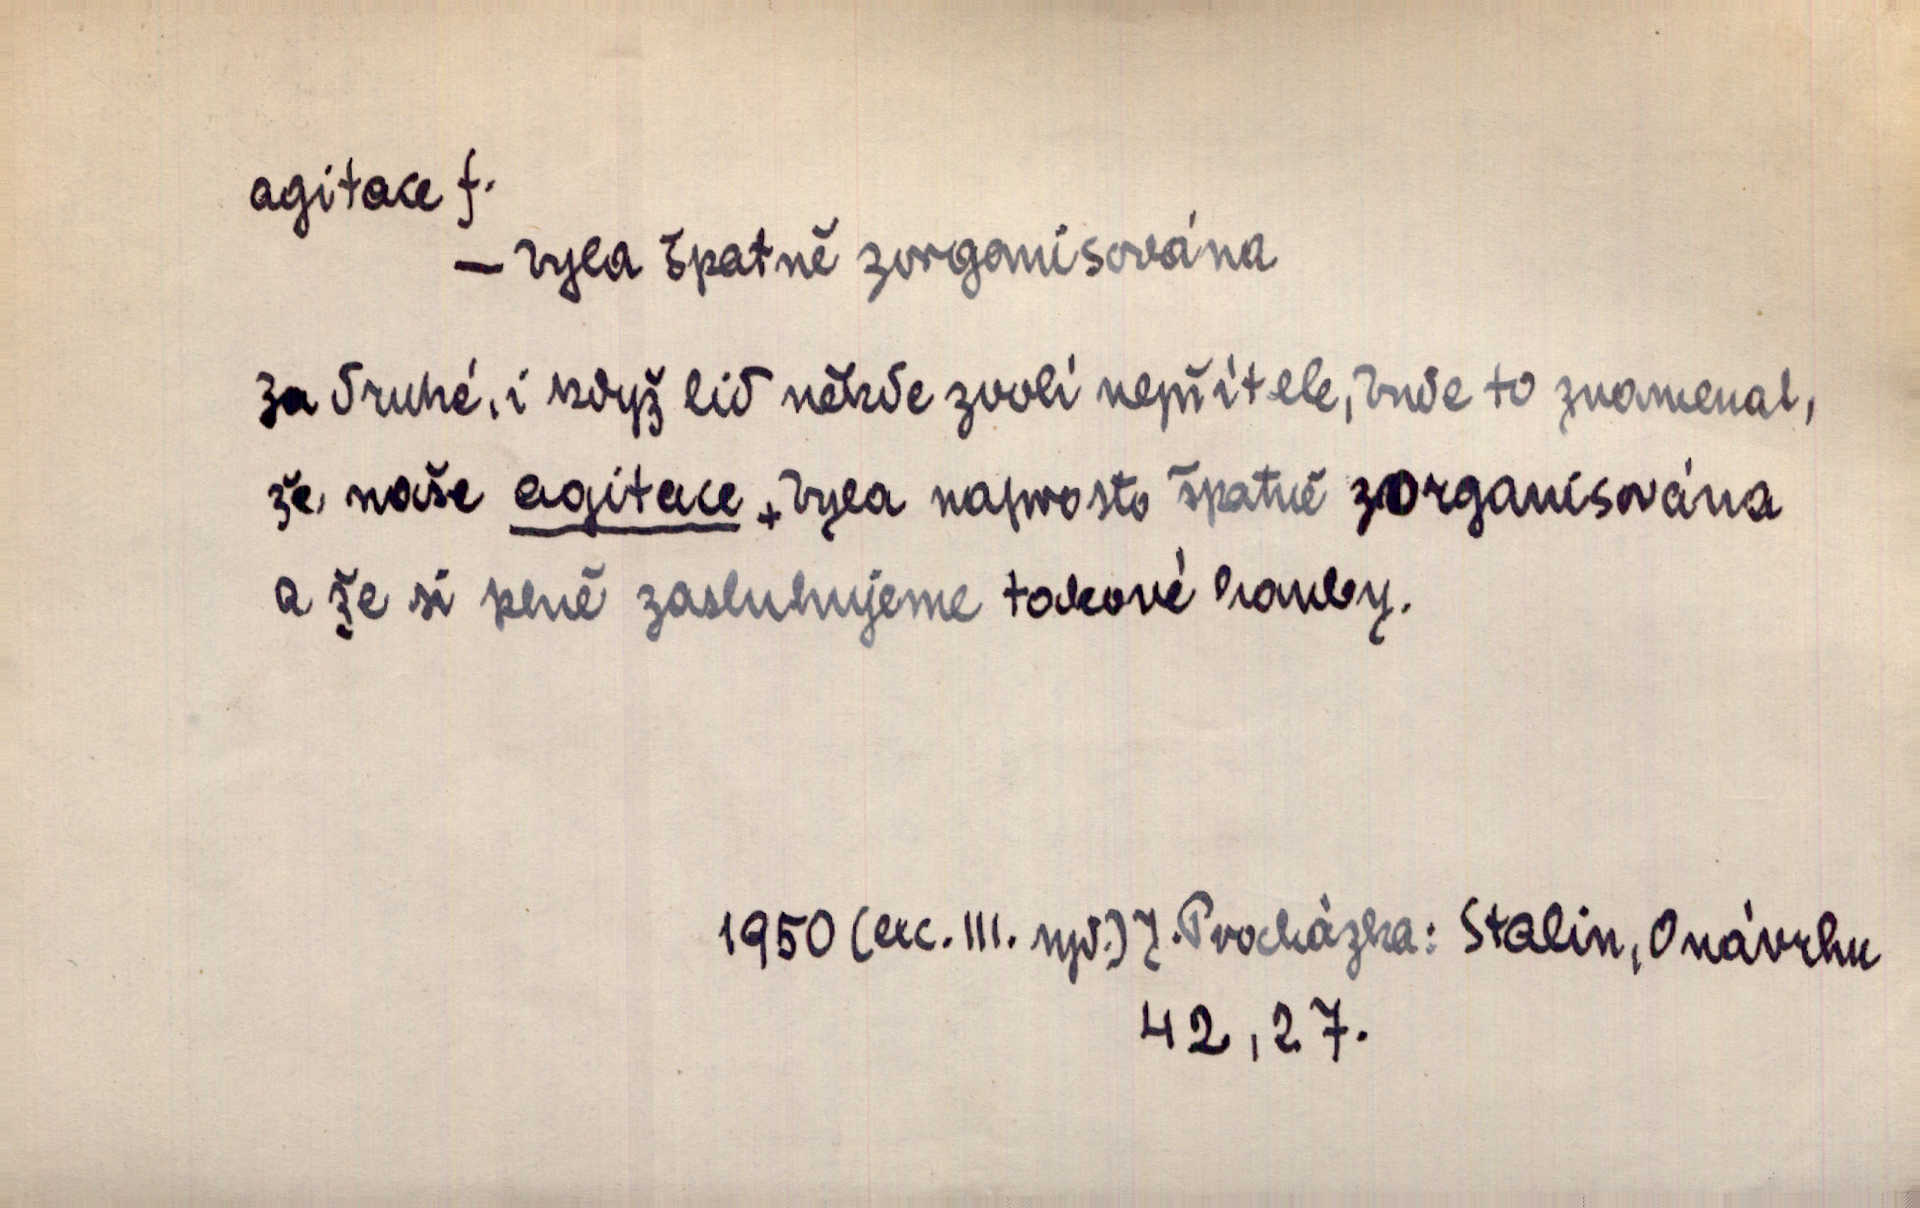 agitace f.
— byla špatně zorganisována
Za druhé, i když lid někde zvolí nepřítele, bude to znamenat,
že, naše agitace + byla naprosto špatně zorganisována
a že si plně zasluhujeme takové hanby.
1950 (exc. III. vyd.) J. Procházka: Stalin, O návrhu
42, 27.